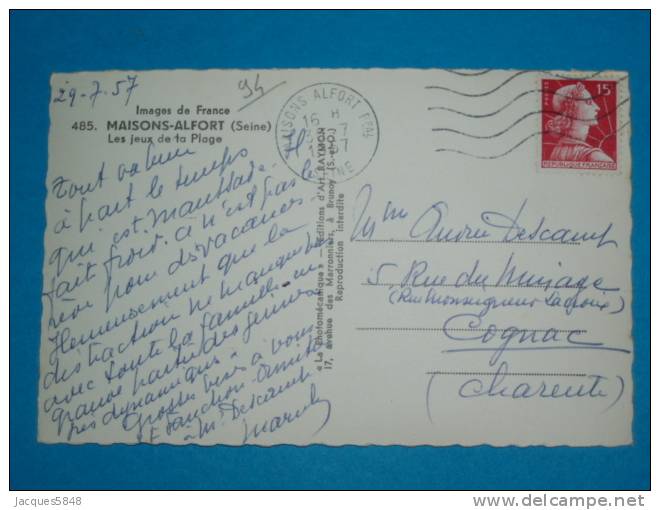 29-7-57
94
Images de France
485. MAISONS-ALFORT (Seine)
Les jeux de la Plage
MAISONS-ALFORT Ppal
16 H
7
1957
SEINE
POSTES
15F
RÉPUBLIQUE FRANÇAISE
Tout va bien
à part le temps
qui est maussade. Il
fait froid. Ce n'est pas le
rêve pour des vacances.
Heureusement que la
distraction ne manque pas
avec toute la famille
grande partie des jeunes
très dynamiques.
Grosses bises à vous
et Fanchon. Amitiés
à M. Descamp
« La Photomécanique » - Éditions d'Art RAYMON
17, avenue des Marronniers, à Brunoy (S.-et-O.)
Reproduction interdite
Mme André Descamp
5, Rue du
(Rue Monseigneur Lacroux)
Cognac
(Charente)
Jacques5848
delcampe.net